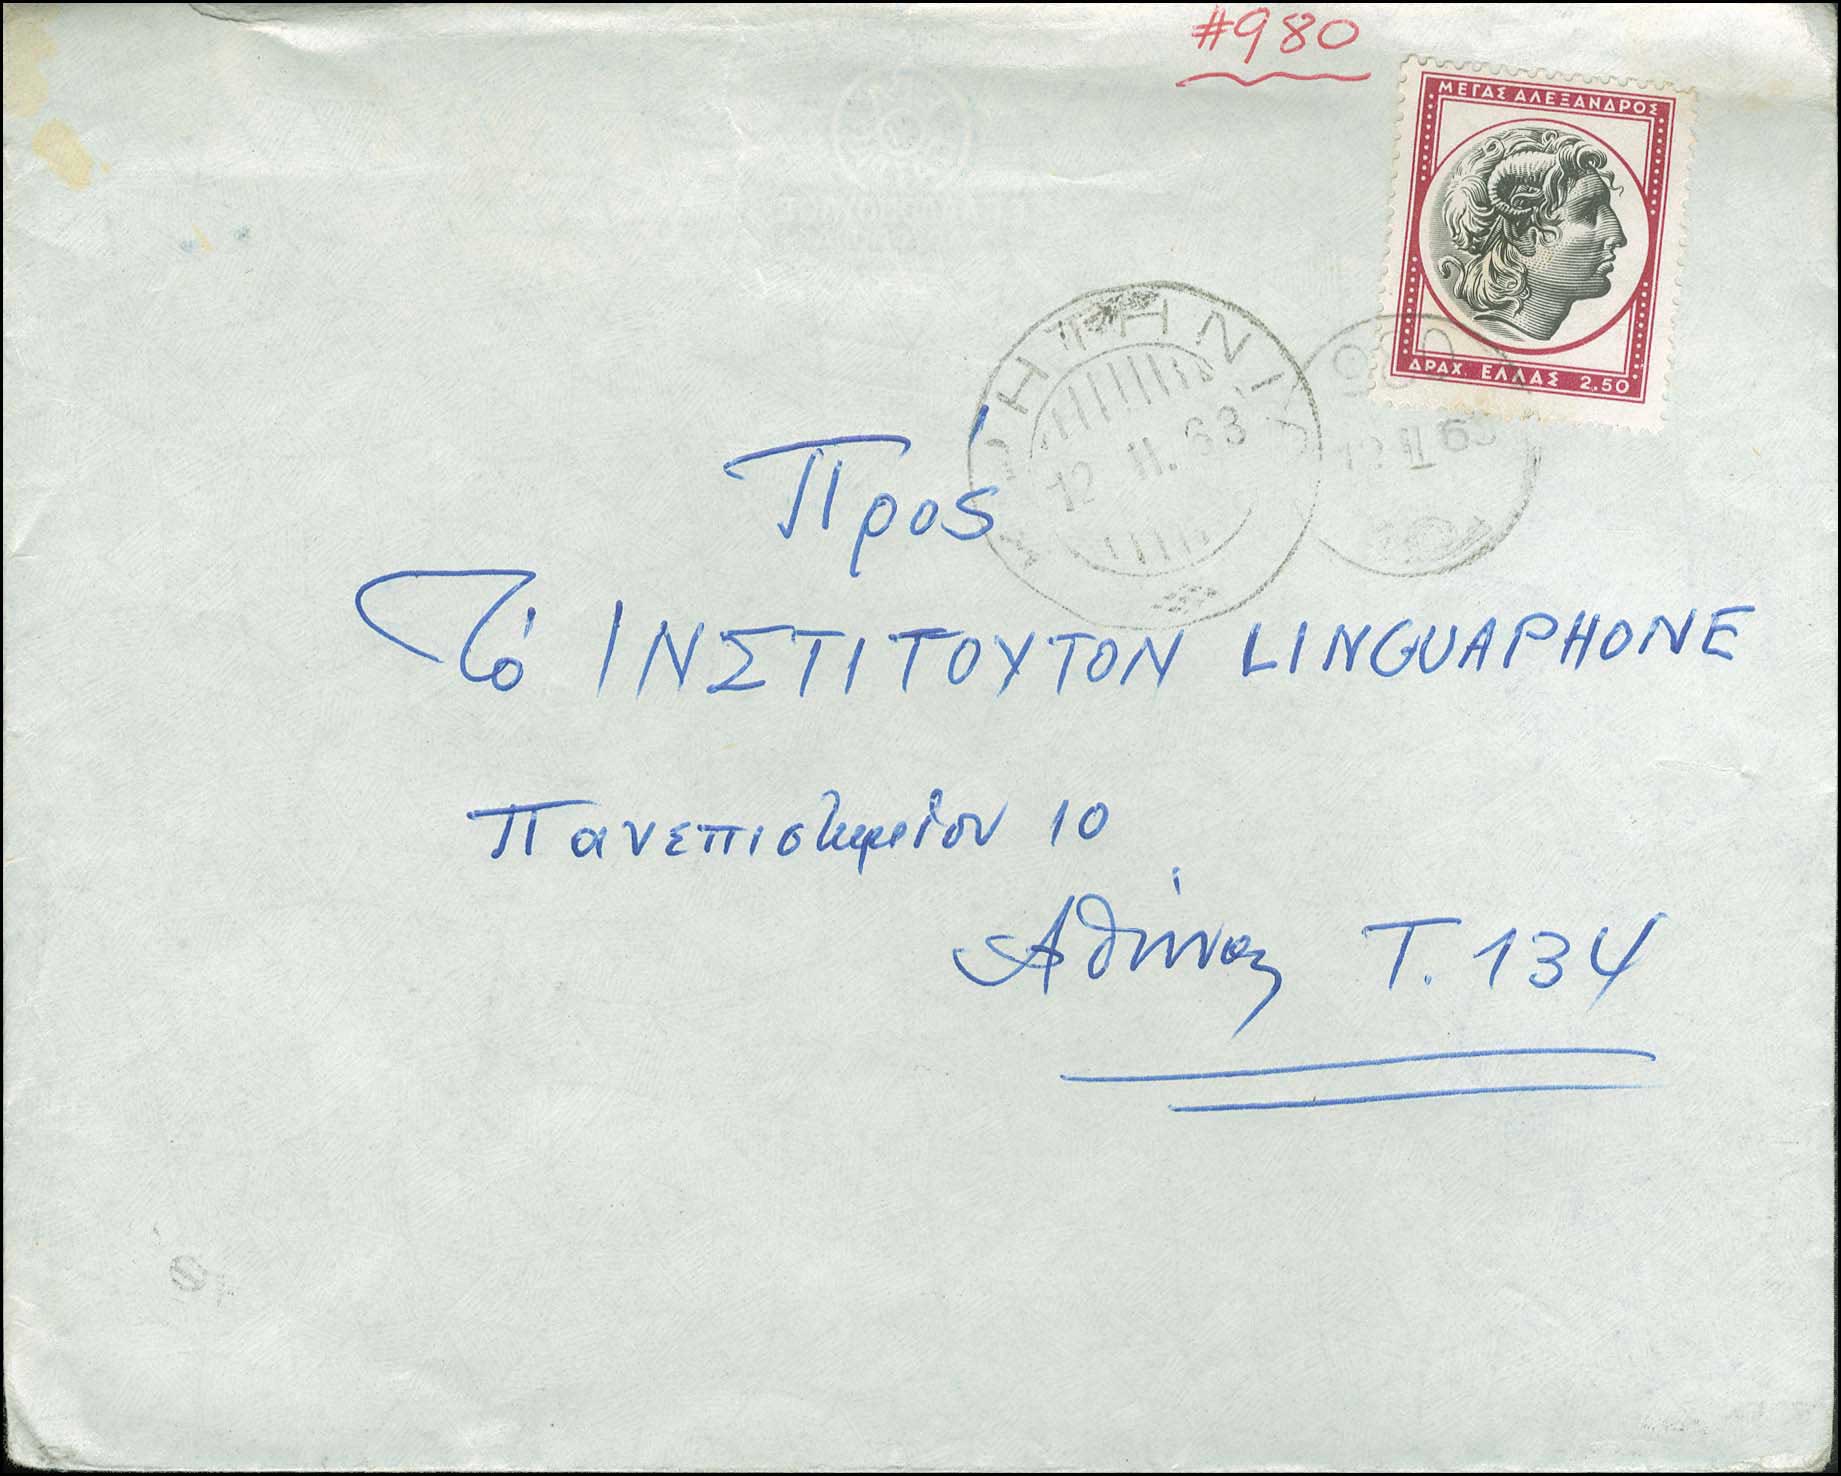 #980
ΜΕΓΑΣ ΑΛΕΞΑΝΔΡΟΣ
ΔΡΑΧ. ΕΛΛΑΣ 2.50
12 II 63
12 II 63
Πρός
Τό ΙΝΣΤΙΤΟΥΤΟΝ LINGUAPHONE
Πανεπιστημίου 10
Ἀθήνας Τ. 134